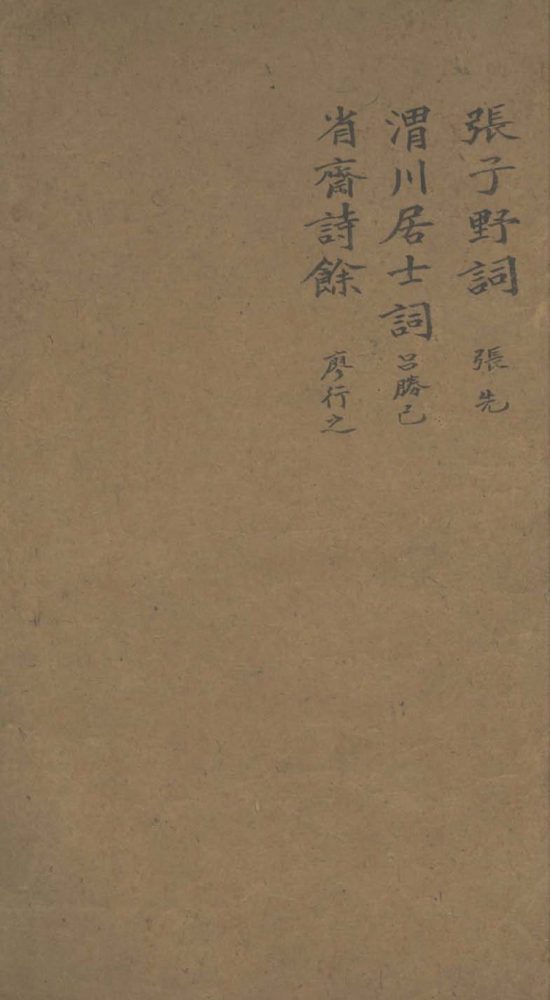 張子野詞 張先
渭川居士詞 呂勝己
省齋詩餘 廖行之